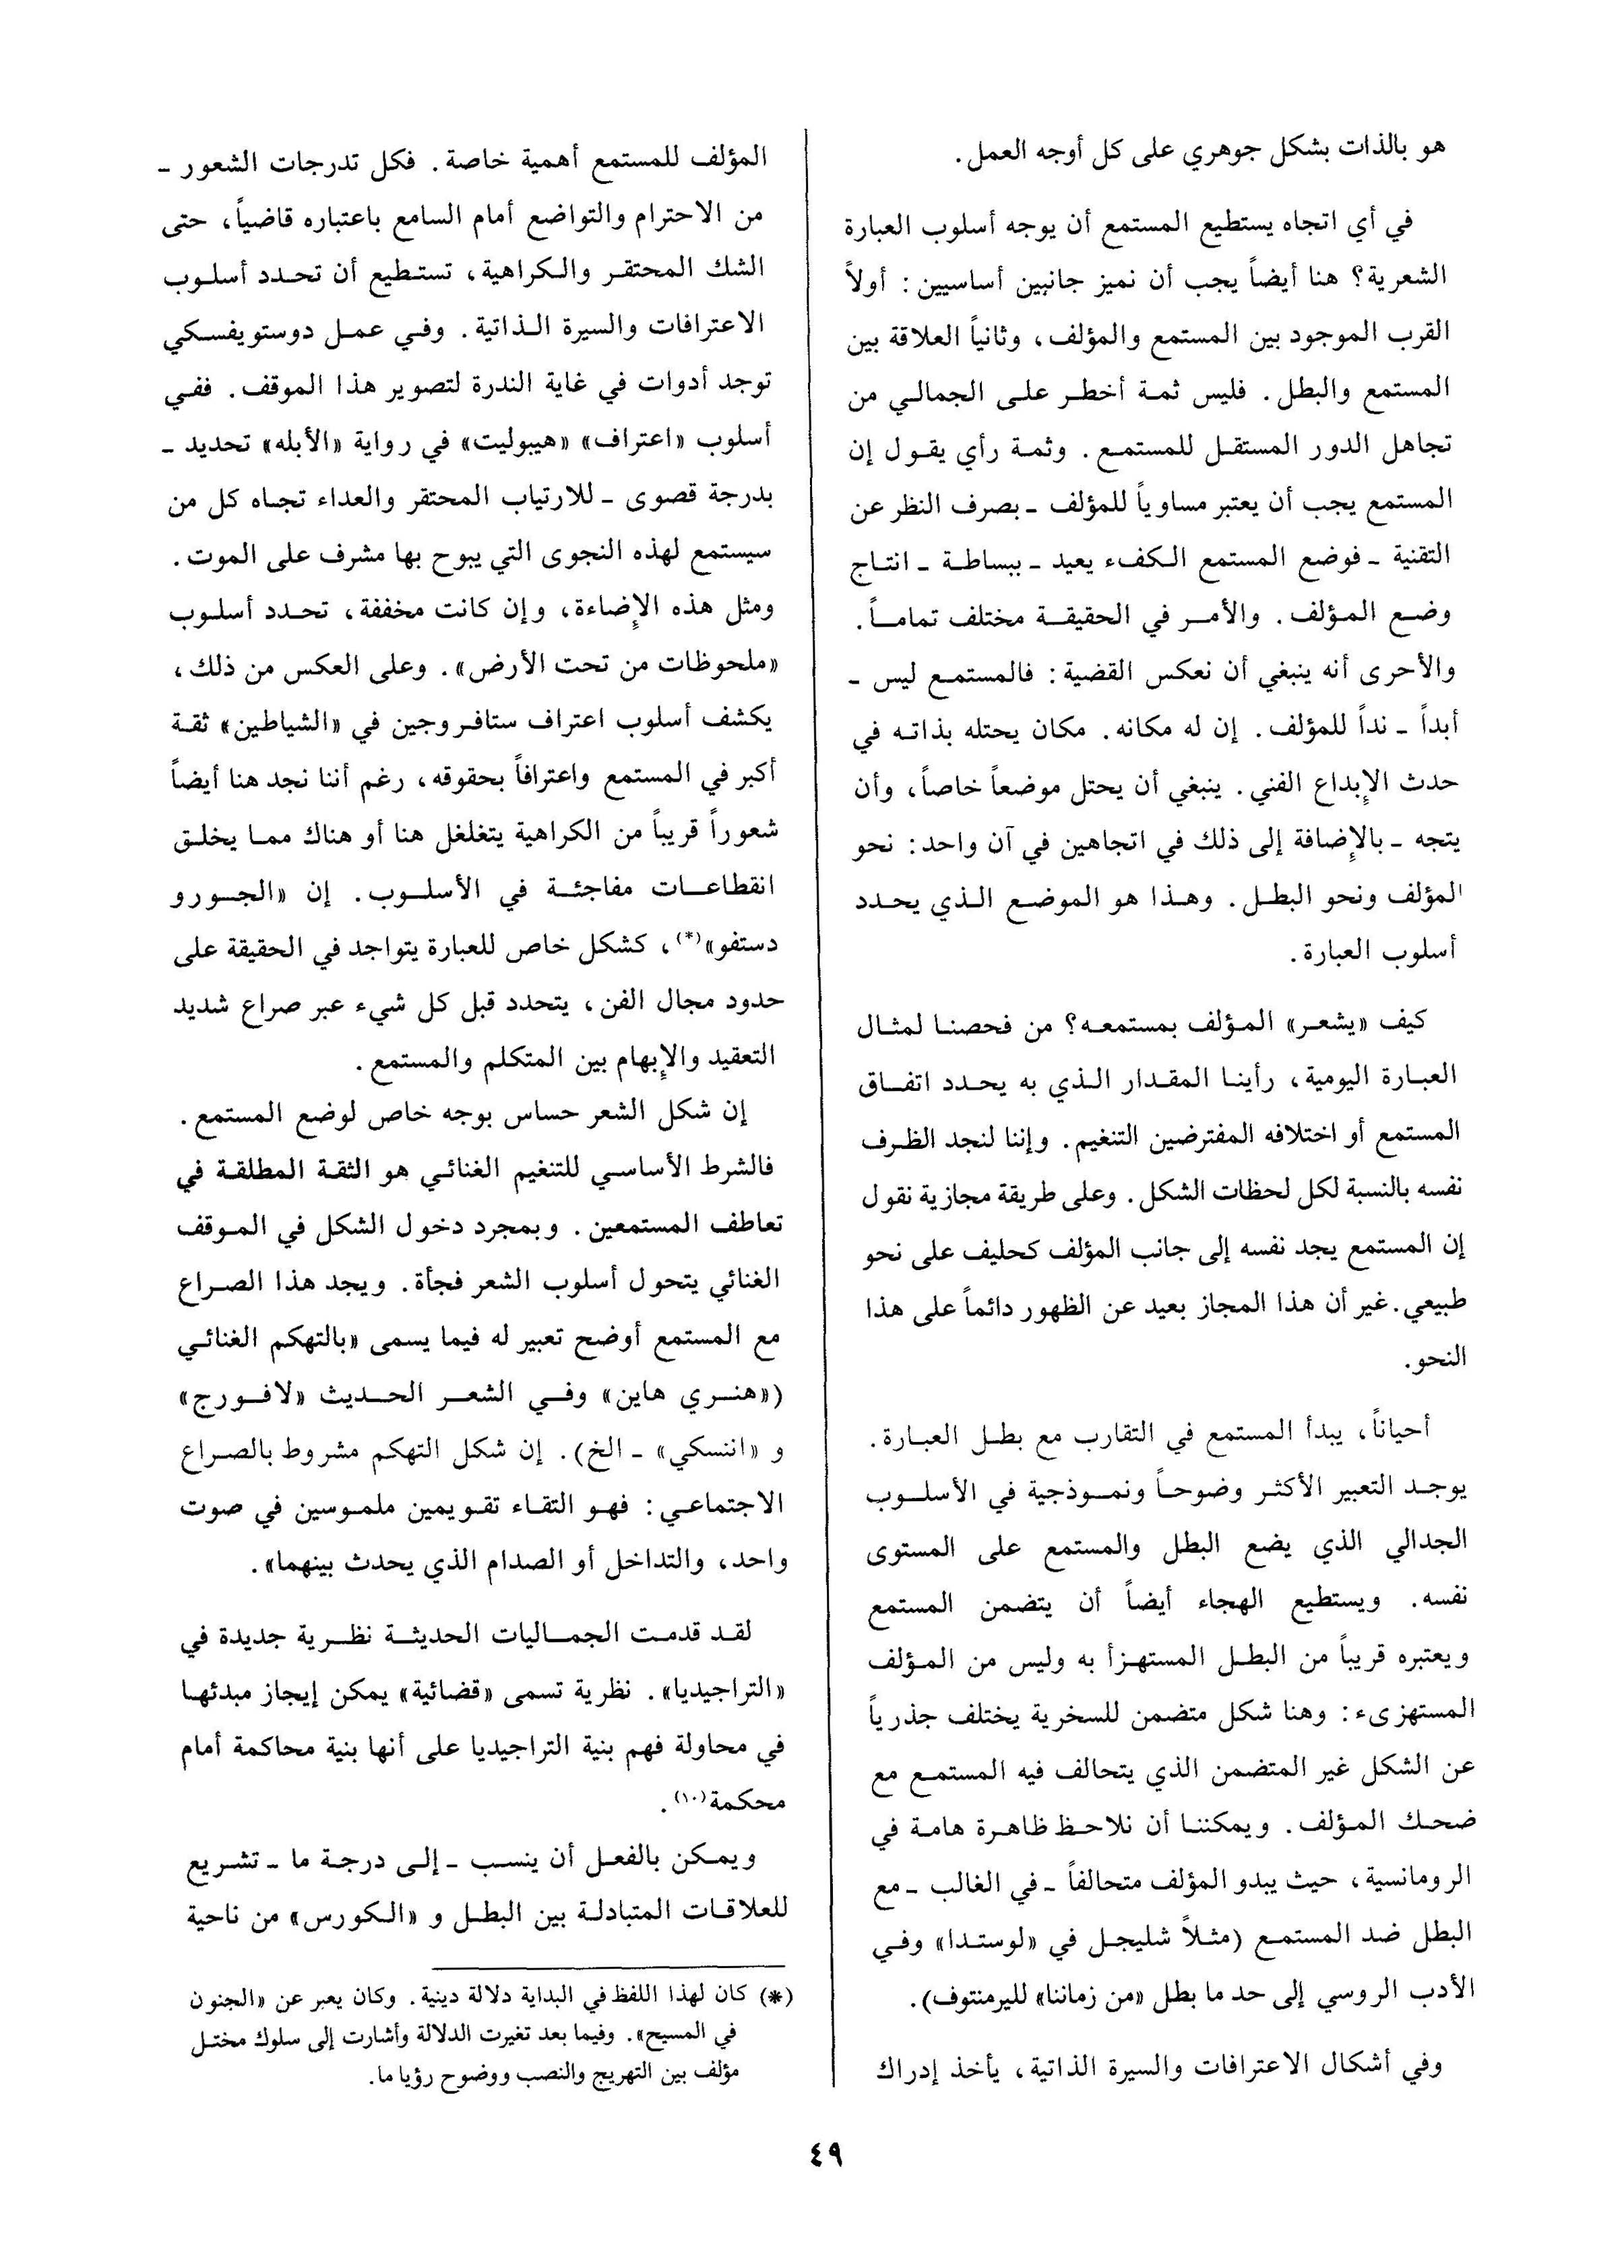 هو بالذات بشكل جوهري على كل أوجه العمل.
في أي اتجاه يستطيع المستمع أن يوجه أسلوب العبارة
الشعرية؟ هنا أيضاً يجب أن نميز جانبين أساسيين: أولاً
القرب الموجود بين المستمع والمؤلف، وثانياً العلاقة بين
المستمع والبطل. فليس ثمة أخطر على الجمالي من
تجاهل الدور المستقل للمستمع. وثمة رأي يقول إن
المستمع يجب أن يعتبر مساوياً للمؤلف ـ بصرف النظر عن
التقنية ـ فوضع المستمع الكفء يعيد ـ ببساطة ـ انتاج
وضع المؤلف. والأمر في الحقيقة مختلف تماماً.
والأحرى أنه ينبغي أن نعكس القضية: فالمستمع ليس ـ
أبداً ـ نداً للمؤلف. إن له مكانه. مكان يحتله بذاته في
حدث الإبداع الفني. ينبغي أن يحتل موضعاً خاصاً، وأن
يتجه ـ بالإضافة إلى ذلك في اتجاهين في آن واحد: نحو
المؤلف ونحو البطل. وهذا هو الموضع الذي يحدد
أسلوب العبارة.
كيف «يشعر» المؤلف بمستمعه؟ من فحصنا لمثال
العبارة اليومية، رأينا المقدار الذي به يحدد اتفاق
المستمع أو اختلافه المفترضين التنغيم. وإننا لنجد الظرف
نفسه بالنسبة لكل لحظات الشكل. وعلى طريقة مجازية نقول
إن المستمع يجد نفسه إلى جانب المؤلف كحليف على نحو
طبيعي. غير أن هذا المجاز بعيد عن الظهور دائماً على هذا
النحو.
أحياناً، يبدأ المستمع في التقارب مع بطل العبارة.
يوجد التعبير الأكثر وضوحاً ونموذجية في الأسلوب
الجدالي الذي يضع البطل والمستمع على المستوى
نفسه. ويستطيع الهجاء أيضاً أن يتضمن المستمع
ويعتبره قريباً من البطل المستهزأ به وليس من المؤلف
المستهزىء: وهنا شكل متضمن للسخرية يختلف جذرياً
عن الشكل غير المتضمن الذي يتحالف فيه المستمع مع
ضحك المؤلف. ويمكننا أن نلاحظ ظاهرة هامة في
الرومانسية، حيث يبدو المؤلف متحالفاً ـ في الغالب ـ مع
البطل ضد المستمع (مثلاً شليجل في «لوستدا» وفي
الأدب الروسي إلى حد ما بطل «من زماننا» لليرمنتوف).
وفي أشكال الاعترافات والسيرة الذاتية، يأخذ إدراك
المؤلف للمستمع أهمية خاصة. فكل تدرجات الشعور ـ
من الاحترام والتواضع أمام السامع باعتباره قاضياً، حتى
الشك المحتقر والكراهية، تستطيع أن تحدد أسلوب
الاعترافات والسيرة الذاتية. وفي عمل دوستويفسكي
توجد أدوات في غاية الندرة لتصوير هذا الموقف. ففي
أسلوب «اعتراف» «هيبوليت» في رواية «الأبله» تحديد ـ
بدرجة قصوى ـ للارتياب المحتقر والعداء تجاه كل من
سيستمع لهذه النجوى التي يبوح بها مشرف على الموت.
ومثل هذه الإضاءة، وإن كانت مخففة، تحدد أسلوب
«ملحوظات من تحت الأرض». وعلى العكس من ذلك،
يكشف أسلوب اعتراف ستافروجين في «الشياطين» ثقة
أكبر في المستمع واعترافاً بحقوقه، رغم أننا نجد هنا أيضاً
شعوراً قريباً من الكراهية يتغلغل هنا أو هناك مما يخلق
انقطاعات مفاجئة في الأسلوب. إن «الجورو
دستفو»(*)، كشكل خاص للعبارة يتواجد في الحقيقة على
حدود مجال الفن، يتحدد قبل كل شيء عبر صراع شديد
التعقيد والإبهام بين المتكلم والمستمع.
إن شكل الشعر حساس بوجه خاص لوضع المستمع.
فالشرط الأساسي للتنغيم الغنائي هو الثقة المطلقة في
تعاطف المستمعين. وبمجرد دخول الشكل في الموقف
الغنائي يتحول أسلوب الشعر فجأة. ويجد هذا الصراع
مع المستمع أوضح تعبير له فيما يسمى «بالتهكم الغنائي
(«هنري هاين» وفي الشعر الحديث «لافورج»
و «اننسكي» ـ الخ). إن شكل التهكم مشروط بالصراع
الاجتماعي: فهو التقاء تقويمين ملموسين في صوت
واحد، والتداخل أو الصدام الذي يحدث بينهما».
لقد قدمت الجماليات الحديثة نظرية جديدة في
«التراجيديا». نظرية تسمى «قضائية» يمكن إيجاز مبدئها
في محاولة فهم بنية التراجيديا على أنها بنية محاكمة أمام
محكمة(١٠).
ويمكن بالفعل أن ينسب ـ إلى درجة ما ـ تشريع
للعلاقات المتبادلة بين البطل و «الكورس» من ناحية
(*) كان لهذا اللفظ في البداية دلالة دينية. وكان يعبر عن «الجنون
في المسيح». وفيما بعد تغيرت الدلالة وأشارت إلى سلوك مختل
مؤلف بين التهريج والنصب ووضوح رؤيا ما.
٤٩